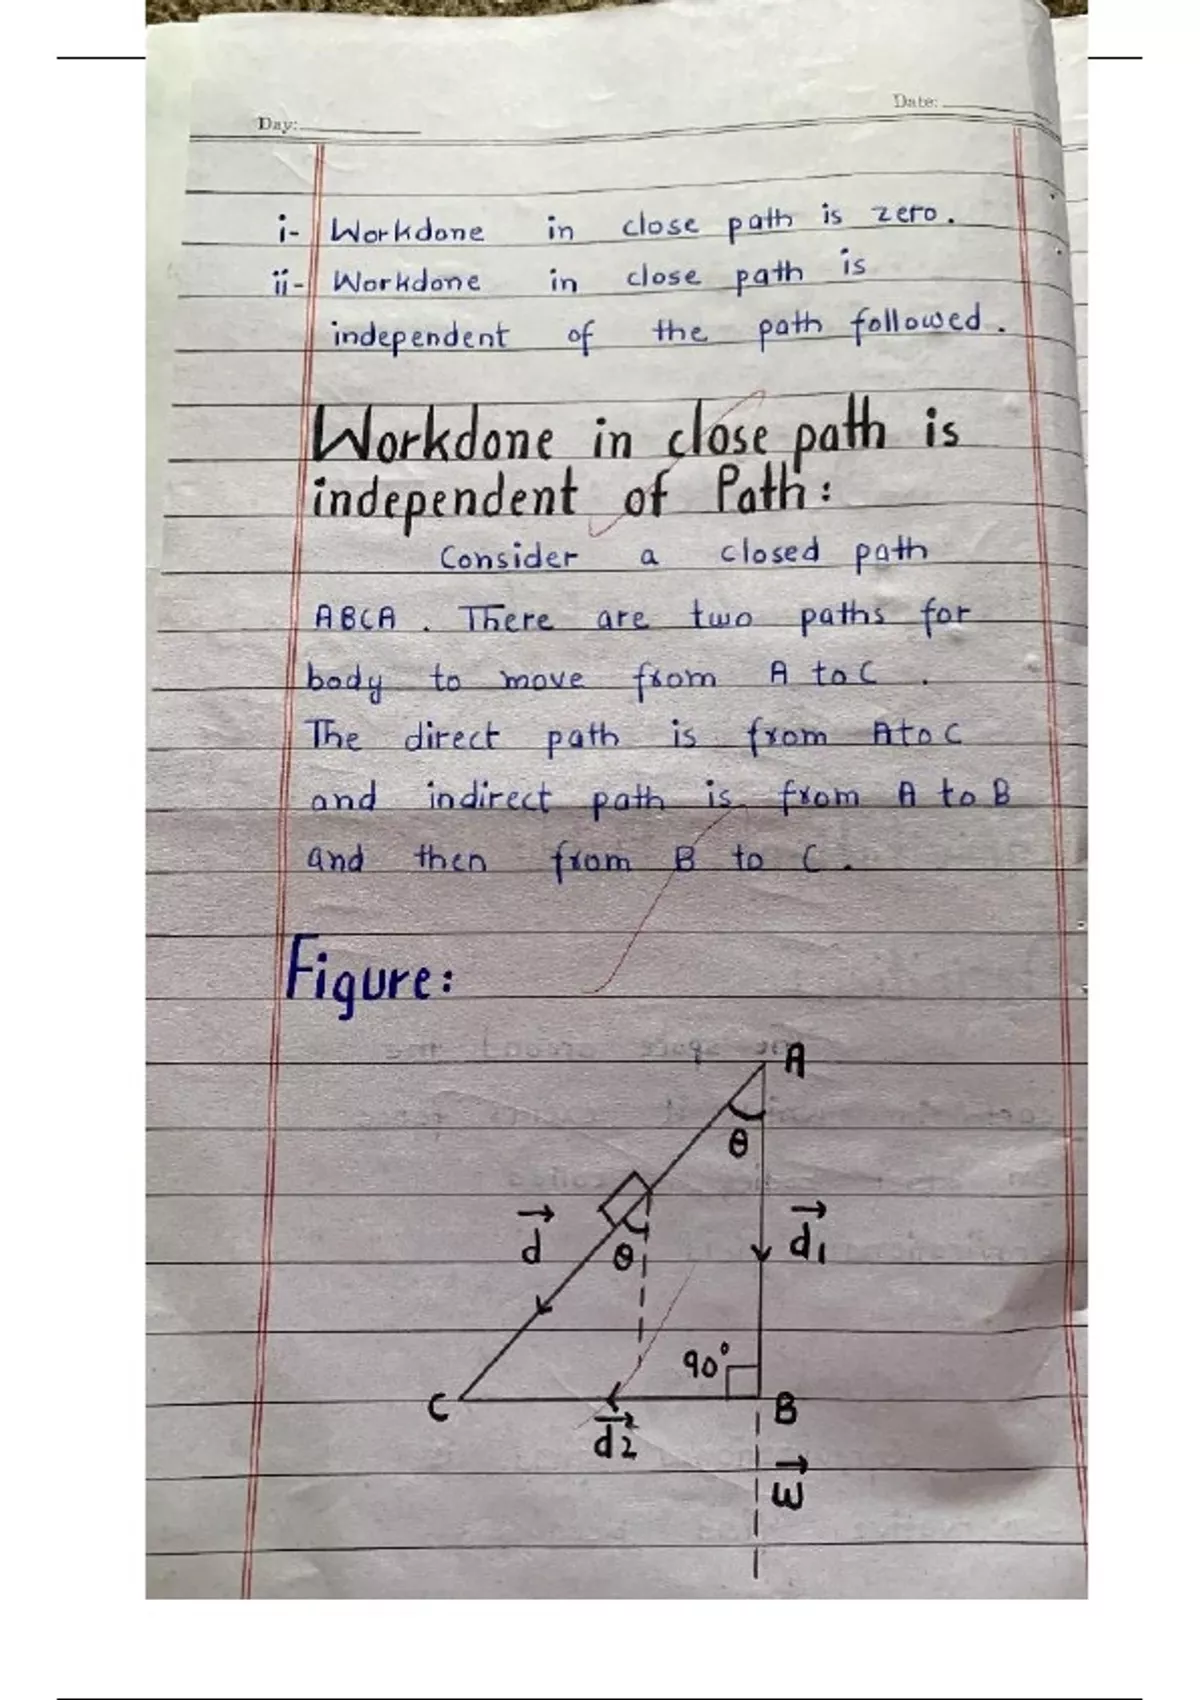 Date:
Day:
i- Workdone in close path is zero.
ii- Workdone in close path is
independent of the path followed.
Workdone in close path is
independent of Path:
Consider a closed path
ABCA. There are two paths for
body to move from A to C.
The direct path is from A to C
and indirect path is from A to B
and then from B to C.
Figure:
A
θ
d⃗
θ
d⃗₁
90°
C
B
d⃗₂
w⃗